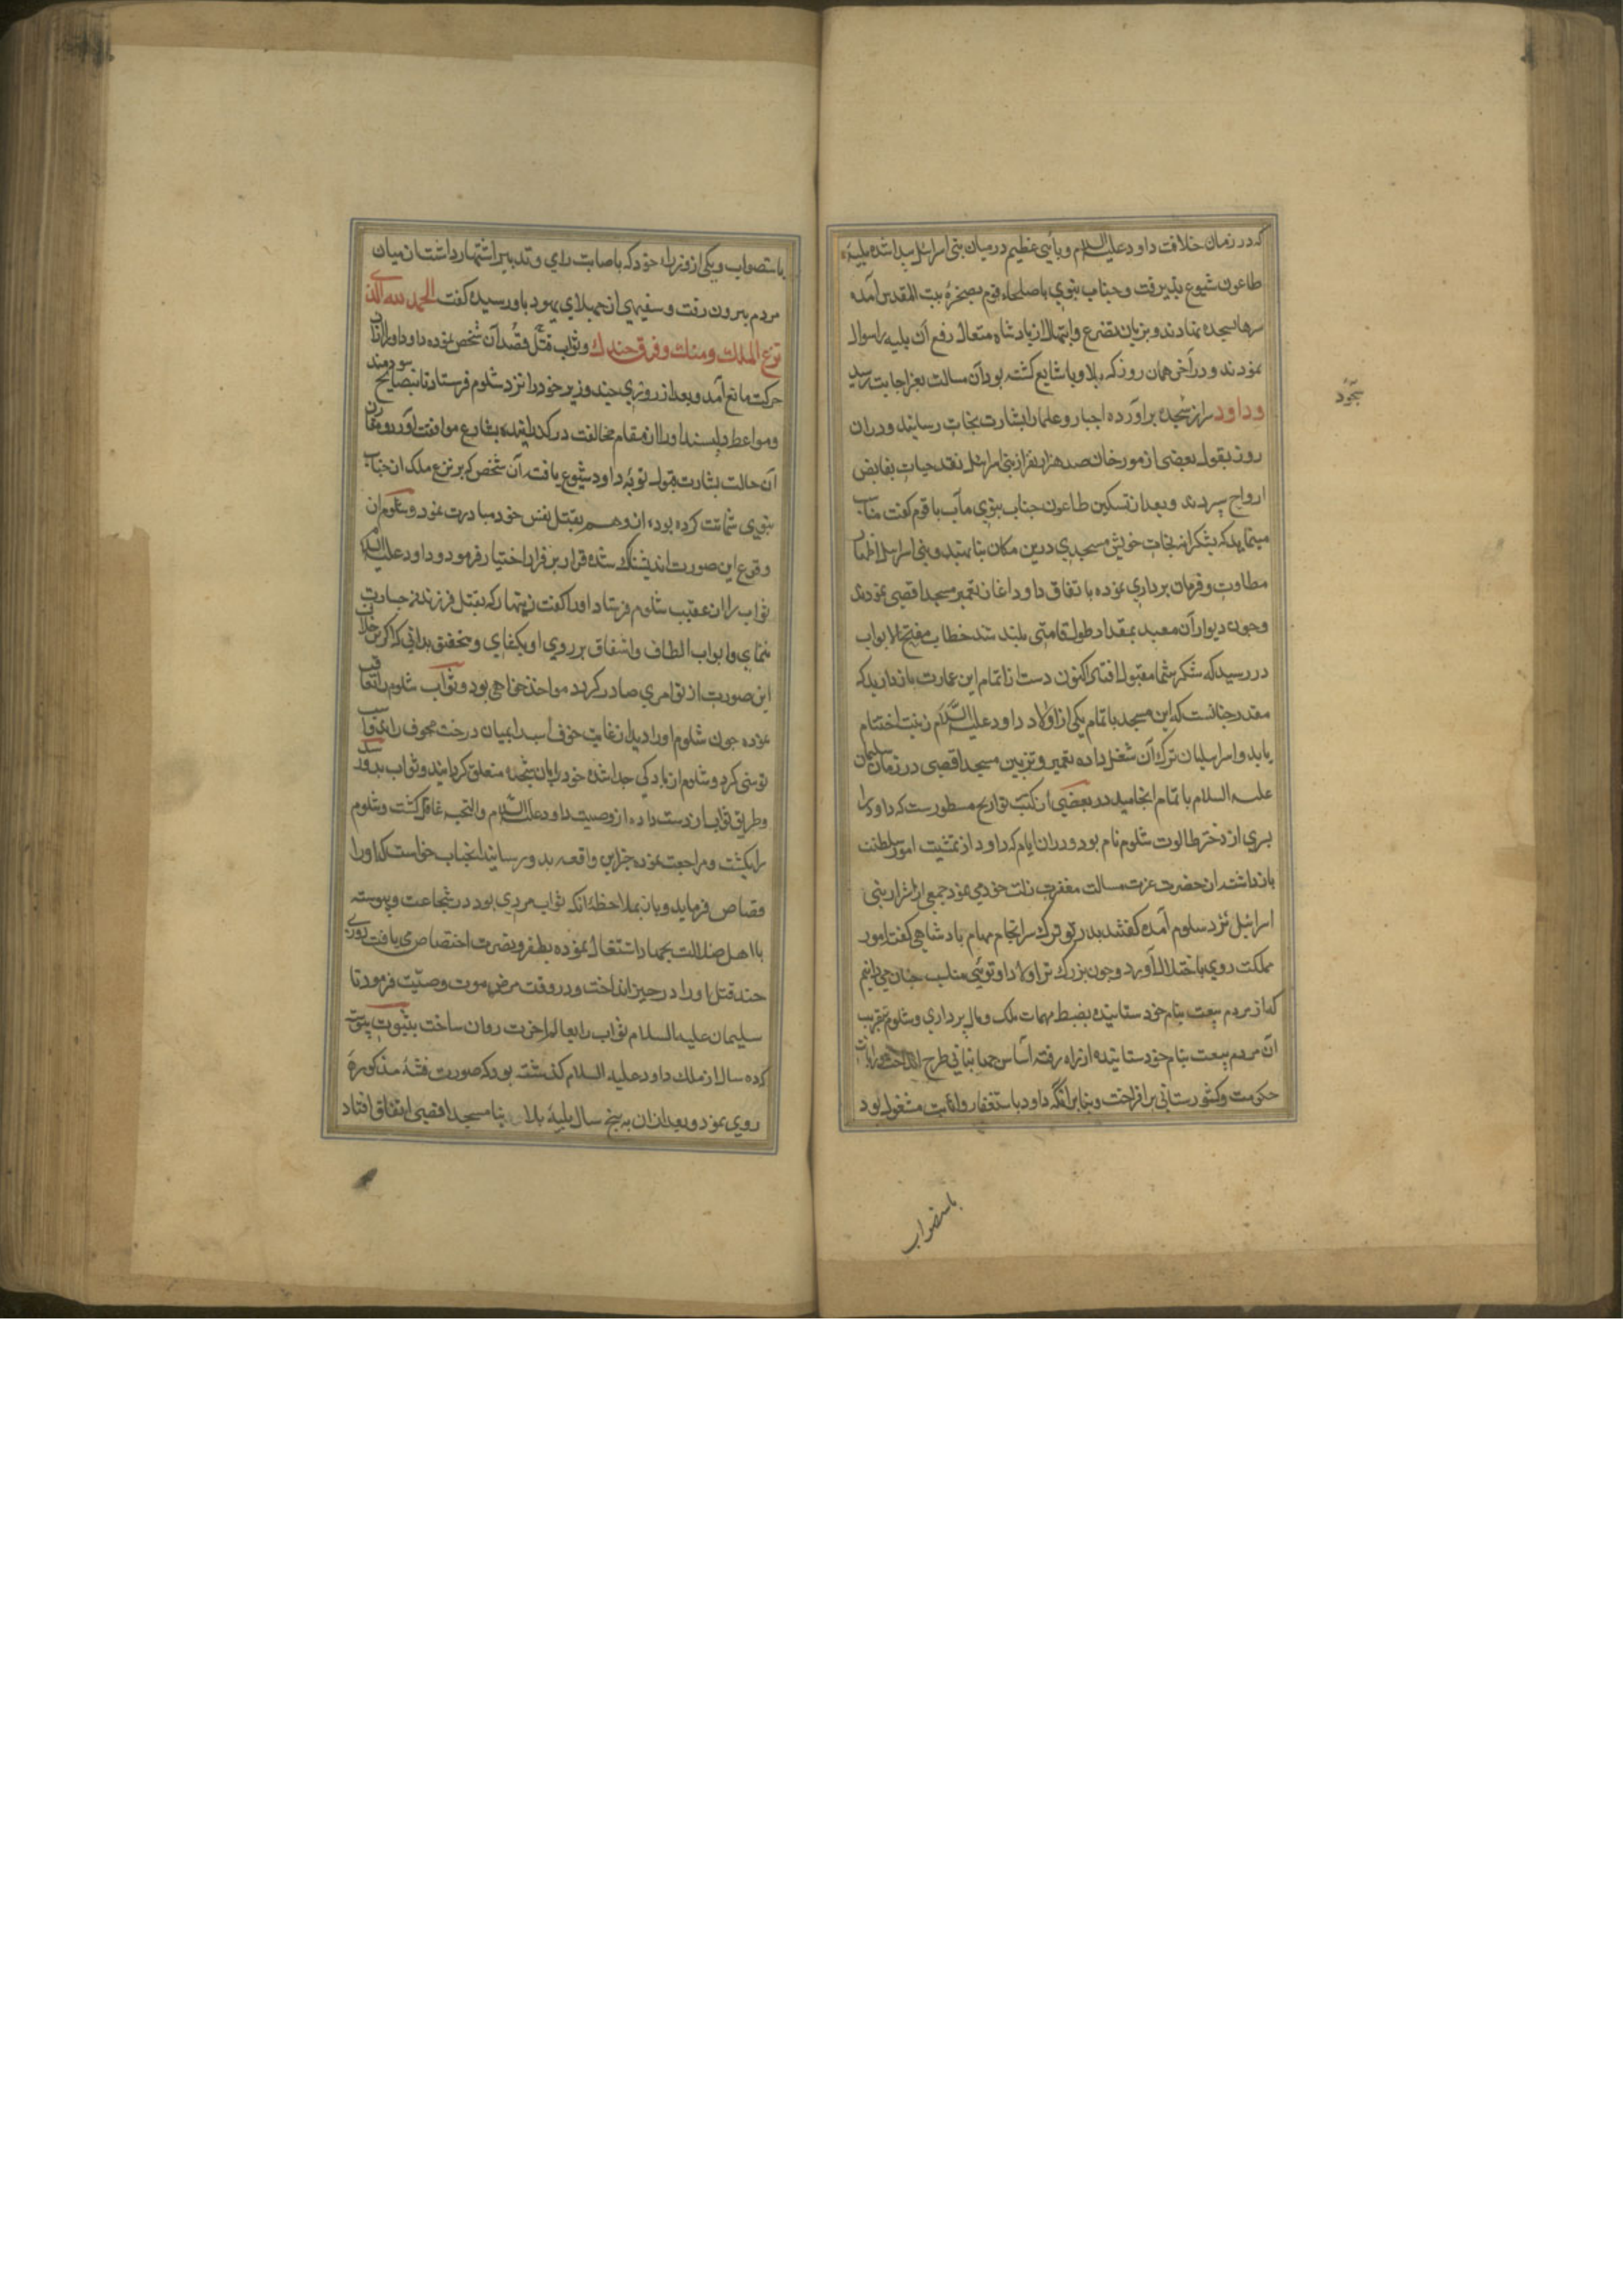 که در زمان خلافت داود علیه السلام وبائی عظیم درمیان بنی اسرائیل پیدا شده بلیهٔ
طاعون شیوع پذیرفت و جناب نبوی با صلحاء قوم بصخرهٔ بیت المقدس آمده
سرها بسجده نهادند و بزبان تضرع و ابتهال از پادشاه متعال رفع آن بلیه را سوال
نمودند و در آخر همان روز که بلا و با شایع کشته بود آن مسالت بعز اجابت رسید
وداود سر از سجده براورده احبار و علما را بشارت نجات رسانید و دران
روز بقول بعضی از مورخان صد هزار نفر از بنی اسرائیل نقد حیات بقابض
ارواح سپردند و بعد از تسکین طاعون جناب نبوی مآب با قوم کفت مناسب
مینماید که بشکرانه نجات خویش مسجدی درین مکان بنا نهید و بنی اسرائیل اظهار
مطاوعت و فرمان برداری نموده با تفاق داود اغاز تعمیر مسجد اقصی نمودند
وجون دیوار آن معبد بمقدار طول قامتی بلند شد خطاب مفتح الابواب
در رسید که شکر شما مقبول افتاد اکنون دست از اتمام این عمارت باز دارید که
مقدر جنانست که این مسجد با تمام یکی از اولاد داود علیه السلام زینت اختتام
یابد و اسرائیلیان ترک آن شغل داده تعمیر و تزیین مسجد اقصی در زمان سلیمان
علیه السلام با تمام انجامید در بعضی از کتب تواریخ مسطورست که داود را
پسری از دختر طالوت شلوم نام بود و دران ایام که داود از تمشیت امور سلطنت
باز داشته از حضرت عزت مسالت مغفرت زلت خود می نمود جمعی از اشرار بنی
اسرائیل نزد سلوم آمده کفتند پدر تو ترک سرانجام مهام پادشاهی کفت امور
مملکت روی باختلال آورد و جون بزرک تر اولاد او توئی مناسب جنان می دانیم
که از مردم بیعت بنام خود ستانیده بضبط مهمات ملک و مال پردازی و شلوم بتقریب
آن مردم بیعت بنام خود ستانیده از راه رفته اساس جهانبانی طرح انداخت و رایات
حکومت و کشورستانی برافراخت و بنابر انکه داود باستغفار و انابت مشغول بود
باستصواب
باستصواب ویکی از وزراء خود که باصابت رای و تدبیر اشتهار داشت از میان
مردم بیرون رفت و سفیهی از جهلای یهود باو رسیده کفت الحمد لله الذی
نزع الملک ومنک وفرق جندک و ثواب قتل قصد آن شخص نموده داود او را ازان
حرکت مانع آمد و بعد از روزی جند وزیر خود را نزد شلوم فرستاد تا بنصایح سودمند
ومواعظ دلپسند او را از مقام مخالفت در کذرانیده بشارع موافقت آورد و مقارن
آن حالت بشارت قبول توبهٔ داود شیوع یافته آن شخص که بر نزع ملک از جناب
نبوی شماتت کرده بود از وهم بقتل نفس خود مبادرت نمود و شلوم از
وقوع این صورت اندیشناک شده قرار بر فرار اختیار فرمود و داود علیه السلام
ثواب را از عقب شلوم فرستاد او را کفت زینهار که بقتل فرزندم جسارت
ننمای و ابواب الطاف و اشفاق بر روی او بکشای و بتحقیق بدانی که اکر بر خلاف
این صورت از تو امری صادر کردد مواخذ خواهی بود و ثواب شلوم را تعاقب
نموده جون شلوم او را دید از غایت خوف اسب را بمیان درخت مجوف راند و اسب
توسنی کرد و شلوم از بارکی جدا شده خود را بان شجره متعلق کردانید و ثواب بدو رسید
وطریق صواب از دست داده از وصیت داود علیه السلام والتحیه غافل کشت و شلوم
را بکشت و مراجعت نموده جزاین واقعه بدو رسانید انجناب خواست که او را
قصاص فرماید و باز بملاحظهٔ انکه ثواب مردی بود در شجاعت و پیوسته
با اهل ضلالت بجهاد اشتغال نموده بظفر و نصرت اختصاص می یافت روزی
جند قتل او را در حیز انداخت و در وقت مرض موت وصیت فرمود تا
سلیمان علیه السلام ثواب را بعالم اخرت روان ساخت بثبوت پیوسته
که ده سال از ملک داود علیه السلام کذشته بود که صورت فتنهٔ مذکوره
روی نمود و بعد ازان به پنج سال بلیهٔ بلا بنا مسجد اقصی اتفاق افتاد